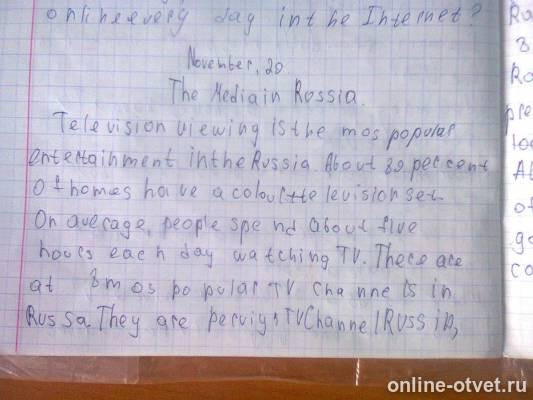 online every day in the Internet?
November, 20
The Media in Russia.
Television viewing is the mos popular
entertainment in the Russia. About 89 per cent
of homes have a colour television set.
On average, people spend about five
hours each day watching TV. There are
at 8 mos popular TV channels in
Russa. They are perviy, TV Channel Russia,
Ro
в
Ro
pre
Al
of
go
co
online-otvet.ru